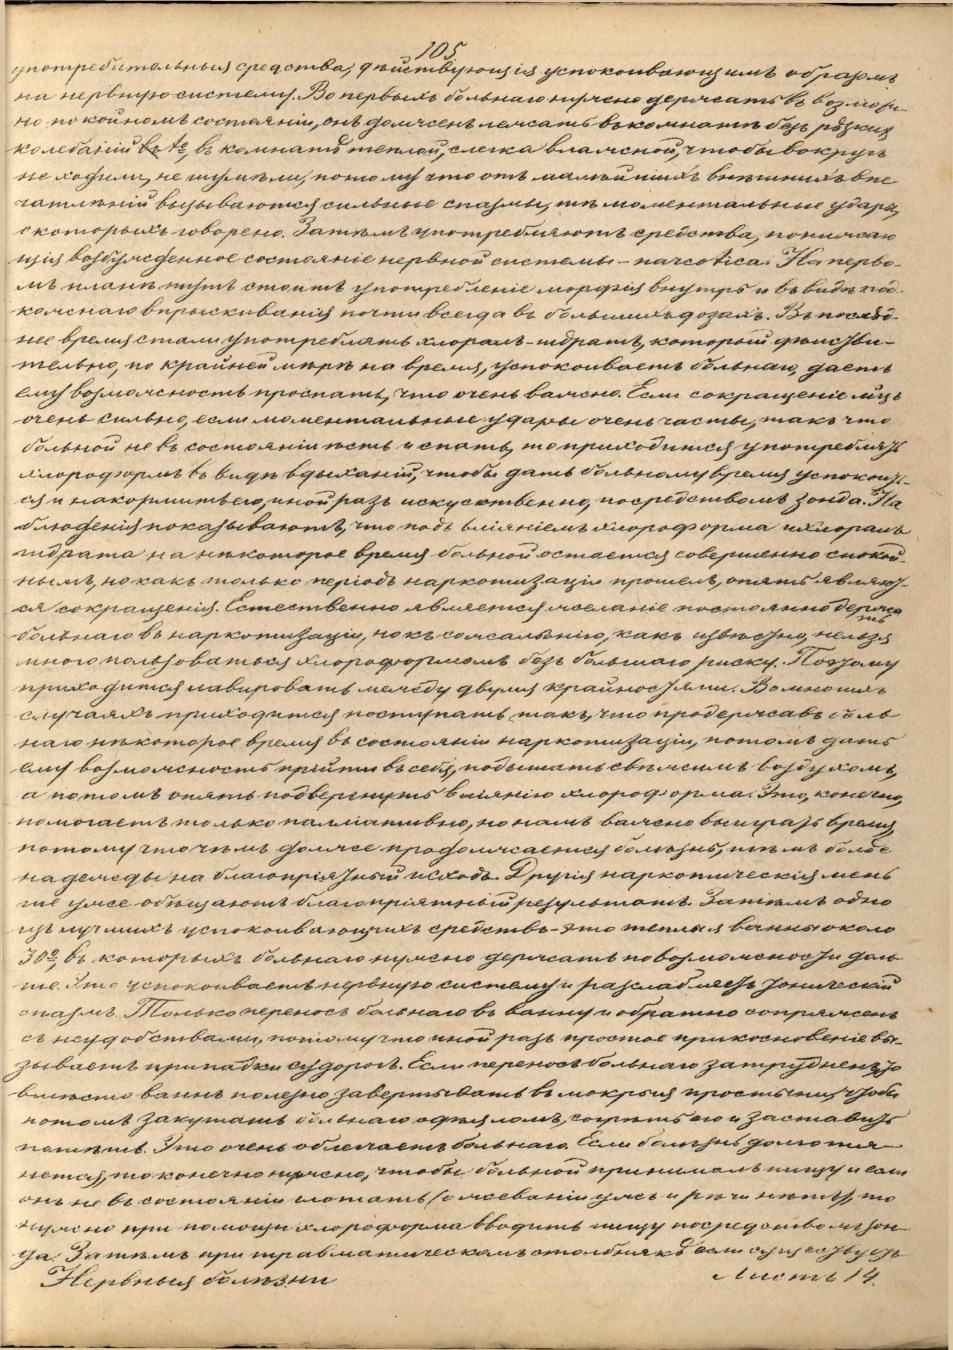 105.
употребительныя средства, дѣйствующія успокоивающимъ образомъ
на нервную систему. Во первыхъ больнаго нужно держать въ возмож-
но покойномъ состояніи, онъ долженъ лежать въ комнатѣ безъ рѣзкихъ
колебаній въ t°, въ комнатѣ теплой, слегка влажной, чтобы вокругъ
не ходили, не шумѣли, потому что отъ малѣйшихъ внѣшнихъ впе
чатлѣній вызываются сильные спазмы, тѣ моментальные удары,
о которыхъ говорено. Затѣмъ употребляютъ средства, понижаю
щія возбужденное состояніе нервной системы – narcotica. На перво-
мъ планѣ тутъ стоитъ употребленіе морфія внутрь и въ видѣ под-
кожнаго впрыскиванія почти всегда въ большихъ дозахъ. Въ послѣд-
нее время стали употреблять хлоралъ-гидратъ, который дѣйстви-
тельно, по крайней мѣрѣ на время, успокоиваетъ больнаго, даетъ
ему возможность проспать, что очень важно. Если сокращеніе мышцъ
очень сильно, если моментальные удары очень часты, такъ что
больной не въ состояніи ѣсть и спать, то приходится употреблять
хлороформъ въ видѣ вдыханій, чтобы дать больному время успокоить-
ся и накормить его, иной разъ искусственно, посредствомъ зонда. На
блюденія показываютъ, что подъ вліяніемъ хлороформа и хлоралъ
гидрата на нѣкоторое время больной остается совершенно спокой-
нымъ, но какъ только періодъ наркотизаціи прошелъ, опять являют-
ся сокращенія. Естественно является желаніе постоянно держать
больнаго въ наркотизаціи, но къ сожалѣнію, какъ извѣстно, нельзя
много пользоваться хлороформомъ безъ большаго риску. Поэтому
приходится лавировать между двумя крайностями. Во многихъ
случаяхъ приходится поступать такъ, что продержавъ боль
наго нѣкоторое время въ состояніи наркотизаціи, потомъ дать
ему возможность прійти въ себя, подышать свѣжимъ воздухомъ,
а потомъ опять подвергнуть вліянію хлороформа. Это, конечно,
помогаетъ только палліативно, но намъ важно выиграть время,
потому что чѣмъ долже продолжается болѣзнь, тѣмъ болѣе
надежды на благопріятный исходъ. Другія наркотическія мень
ше уже обѣщаютъ благопріятный результатъ. Затѣмъ одно
изъ лучшихъ успокоивающихъ средствъ – это теплыя ванны около
30°, въ которыхъ больнаго нужно держать по возможности доль
ше. Это успокоиваетъ нервную систему и разслабляетъ тоническій
спазмъ. Только переносъ больнаго въ ванну и обратно сопряженъ
съ неудобствами, потому что иной разъ простое прикосновеніе вы-
зываетъ припадки судорогъ. Если переносъ больнаго затрудненъ, то
вмѣсто ваннъ полезно завертывать въ мокрыя простыни, чтобы
потомъ закутать больнаго одѣяломъ, согрѣть его и заставить
потѣть. Это очень облегчаетъ больнаго. Если болѣзнь долго тя
нется, то конечно нужно, чтобы больной принималъ пищу и если
онъ не въ состояніи глотать (о жеваніи ужъ и рѣчи нѣтъ), то
нужно при помощи хлороформа вводить пищу посредствомъ зон-
да. Затѣмъ при травматическомъ столбнякѣ если существуетъ
Нервныя болѣзни
Листъ 14.